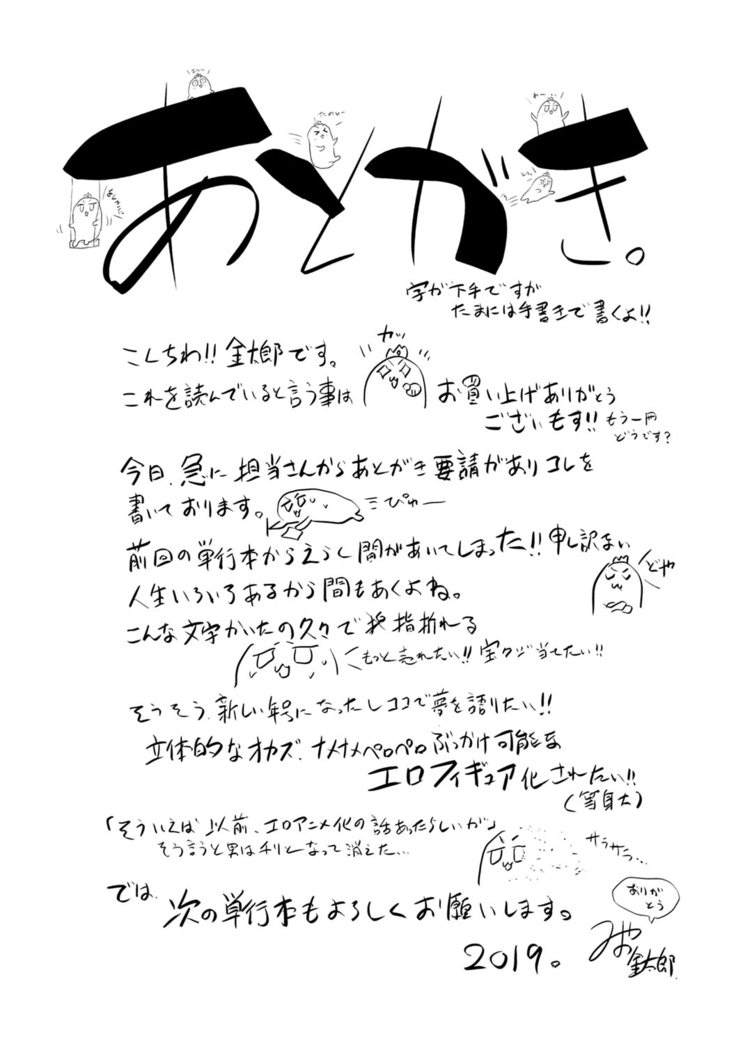 あとがき。
たのしー
わーい
字が下手ですが
たまには手書きで書くよ!!
こんちわ!!金太郎です。
カッ
これを読んでいると言う事は
お買い上げありがとう
ございもす!!
もう一冊
どうです?
今日、急に担当さんからあとがき要請がありコレを
書いております。
ぴゅー
前回の単行本からえらく間があいてしまった!!申し訳ない
どや
人生いろいろあるから間もあくよね。
こんな文字かいたの久々で 指折れる
もっと売れたい!!宝クジ当てたい!!
そうそう、新しい年号になったしココで夢を語りたい!!
立体的なオカズ、ナメナメペロペロぶっかけ可能な
エロフィギュア化されたい!!
(等身大)
「そういえば以前、エロアニメ化の話あったらしいが」
そう言うと男はチリとなって消えた…
サラサラ…
では、次の単行本もよろしくお願いします。
ありが
とう
2019。
みやお
金太郎